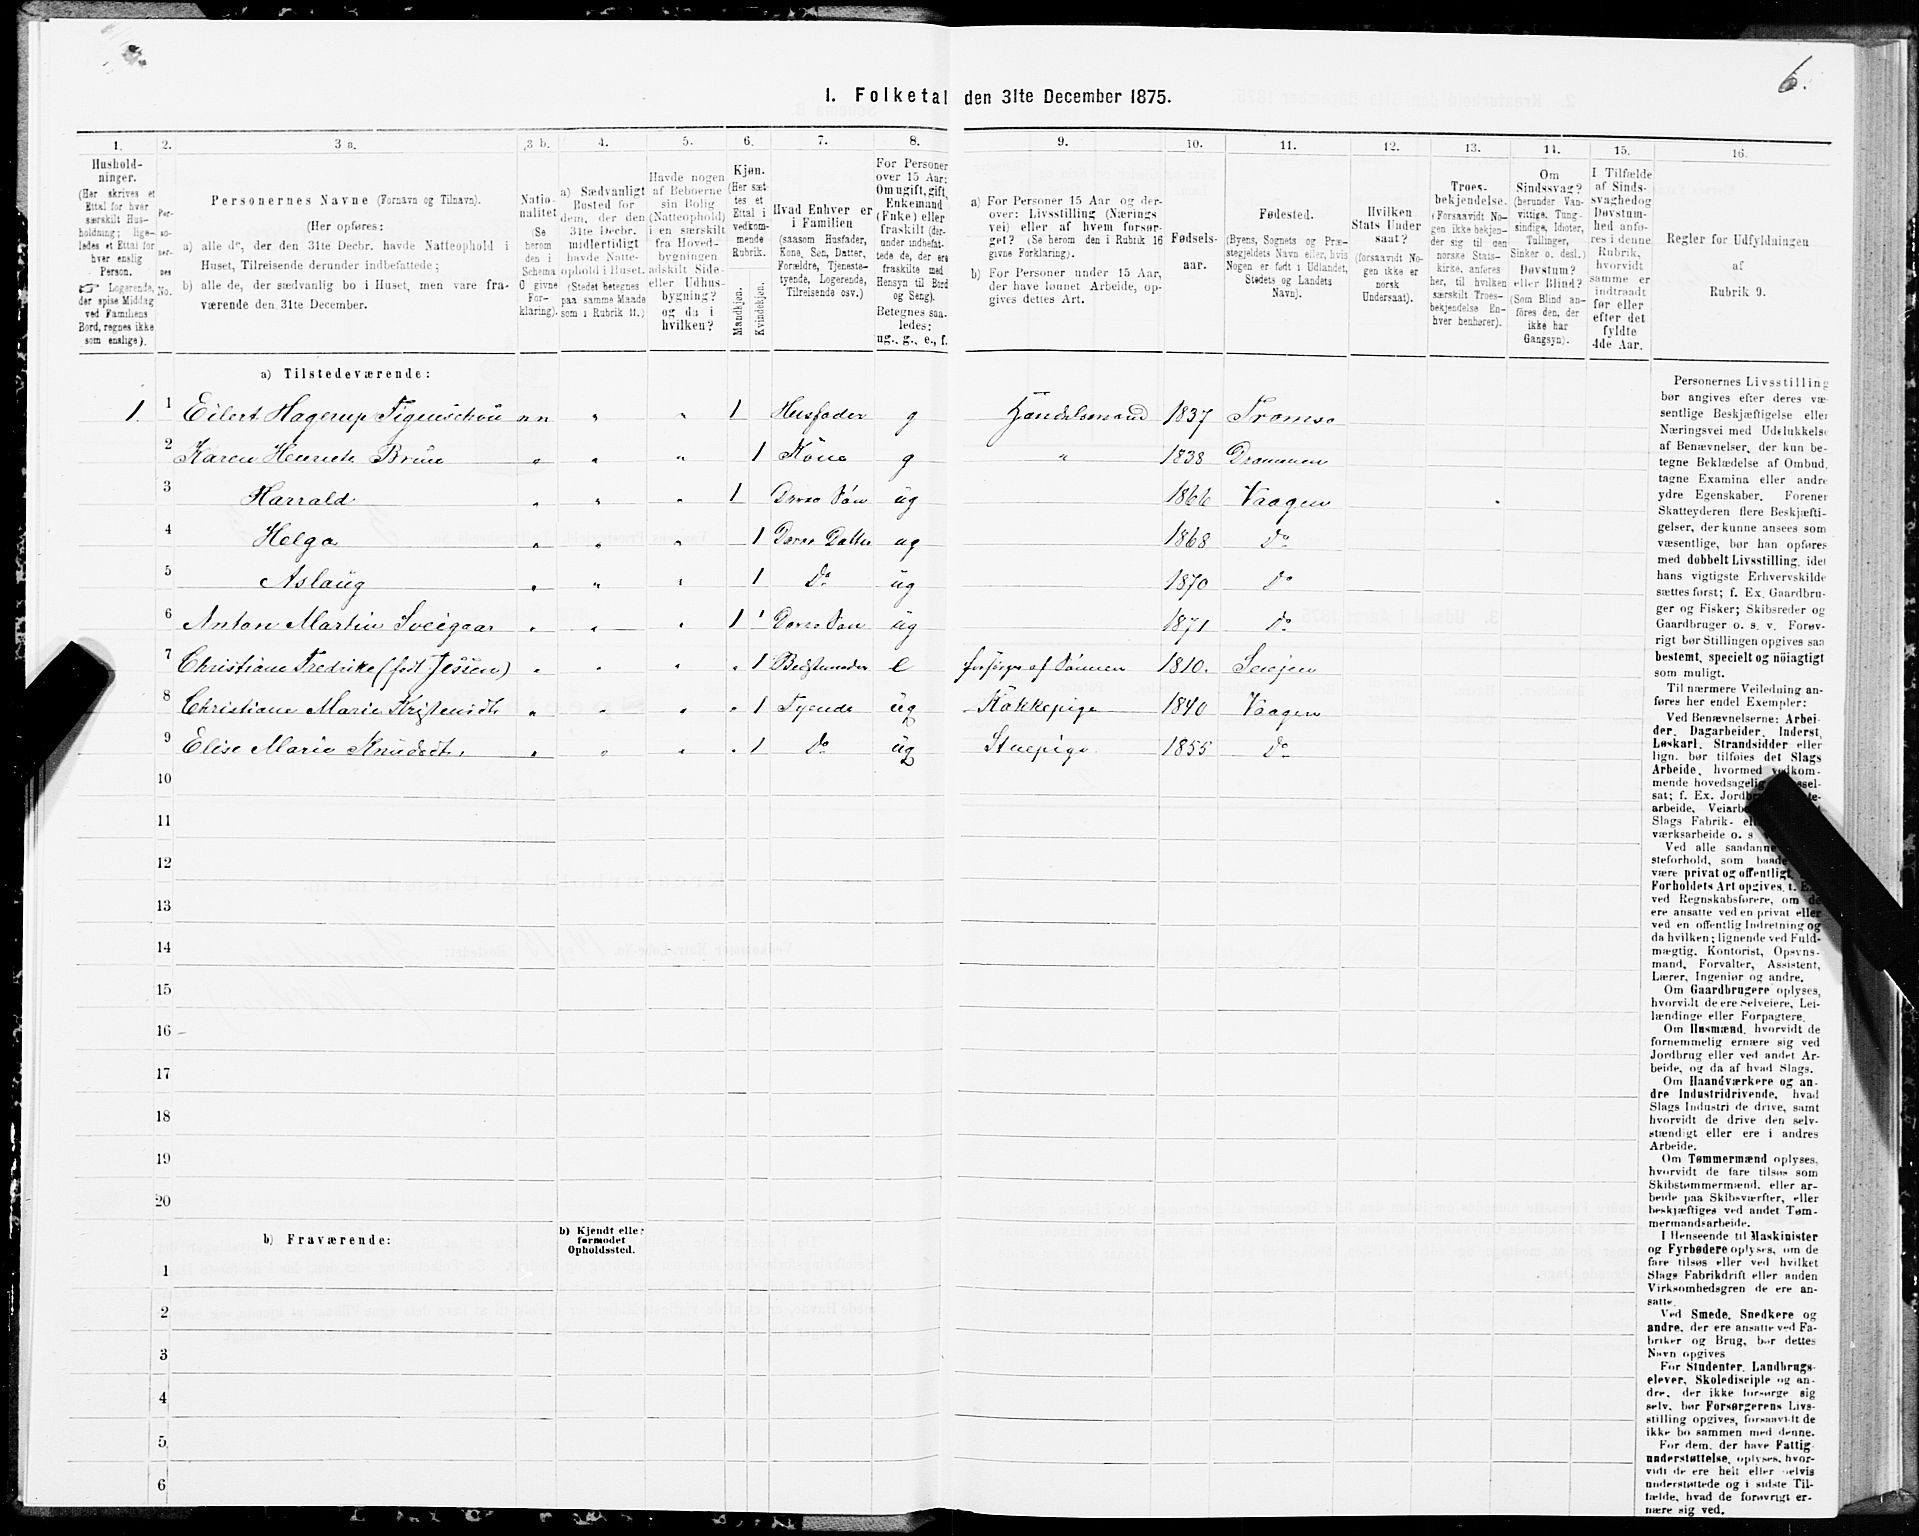 6.
1. Folketal den 31te December 1875.
1. 2. 3 a. 3 b. 4. 5. 6. 7. 8. 9. 10. 11. 12. 13. 14. 15. 16.
Hushold-
ninger.
(Her skrives et
Ettal for hver
særskilt Hus-
holdning; lige-
ledes et Ettal for
hver enslig
Person.
Logerende,
der spise Middag
ved Familiens
Bord, regnes ikke
som enslige).
Per-
so-
ner-
nes
No.
Personernes Navne (Fornavn og Tilnavn).
(Her opføres:
a) alle de, der den 31te Decbr. havde Natteophold i
Huset, Tilreisende derunder indbefattede;
b) alle de, der sædvanlig bo i Huset, men vare fra-
værende den 31te December.
Natio-
nalitet
(Se
herom
den i
Schema
C givne
For-
klaring).
a) Sædvanligt
Bosted for
dem, der den
31te Decbr.
midlertidigt
havde Natte-
ophold i Huset.
(Stedet betegnes
paa samme Maade
som i Rubrik 11.)
Havde nogen
af Beboerne
sin Bolig
(Natteophold)
i en særskilt
fra Hoved-
bygningen
adskilt Side-
eller Udhus-
bygning?
og da i
hvilken?
Kjøn.
(Her sæt-
tes et
Ettal i
vedkom-
mende
Rubrik.
Mandkjøn.
Kvindekjøn.
Hvad Enhver er
i Familien
(saasom Husfader,
Kone, Søn, Datter,
Forældre, Tjeneste-
tyende, Logerende,
Tilreisende osv.)
For Personer
over 15 Aar:
Om ugift, gift,
Enkemand
(Enke) eller
fraskilt (der-
under indbefat-
tede de, der ere
fraskilte med
Hensyn til Bord
og Seng).
Betegnes saa-
ledes:
ug., g., e., f.
a) For Personer 15 Aar og der-
over: Livsstilling (Nærings
vei) eller af hvem forsør-
get? (Se herom den i Rubrik 16
givne Forklaring).
b) For Personer under 15 Aar,
der have lønnet Arbeide, op-
gives dettes Art.
Fødsels-
aar.
Fødested.
(Byens, Sognets og Præ-
stegjeldets Navn eller, hvis
Nogen er født i Udlandet,
Stedets og Landets
Navn).
Hvilken
Stats Under
saat?
(forsaavidt No-
gen ikke er
norsk
Undersaat).
Troes-
bekjendelse.
(Forsaavidt No-
gen ikke bekjen-
der sig til den
norske Stats-
kirke, anføres
her, til hvilken
særskilt Troes-
bekjendelse En-
hver henhører).
Om
Sindssvag?
(herunder Van-
vittige, Tung-
sindige, Idioter,
Tullinger,
Sinker o. desl.)
Døvstum?
eller Blind?
(Som Blind an-
føres den, der
ikke har
Gangsyn).
I Tilfælde
af Sinds-
svaghed og
Døvstum-
hed anfø-
res i denne
Rubrik,
hvorvidt
samme er
indtraadt
før eller
efter det
fyldte
4de Aar.
Regler for Udfyldningen
af
Rubrik 9.
a) Tilstedeværende:
1. 1 Eilert Hagerup Figenschou n n " " 1 Husfader g Handelsmand 1837 Tromsø
2 Karen Henriette Brun " " " 1 Kone g " 1838 Drammen
3 Harrald " " " 1 Deres Søn ug 1866 Vaagen
4 Helga " " " 1 Deres Datter ug 1868 Do
5 Aslaug " " " 1 Do ug 1870 Do
6 Anton Martin Sveigaar " " " 1 Deres Søn ug 1871 Do
7 Christiane Fredrike (født Jessen) " " " " 1 Bedstmoder e forsørges af Sønnen 1810. Senjen
8 Christiane Marie Kristensdt " " " " 1 Tyende ug Kokkepige 1840 Vaagen
9 Elise Marie Knudsdt. " " " " 1 Do ug Stuepige 1855 Do
10
11
12
13
14
15
16
17
18
19
20
b) Fraværende:
b) Kjendt eller
formodet
Opholdssted.
1
2
3
4
5
6
Personernes Livsstilling
bør angives efter deres væ-
sentlige Beskjæftigelse eller
Næringsvei med Udelukkelse
af Benævnelser, der kun be-
tegne Beklædelse af Ombud,
tagne Examina eller andre
ydre Egenskaber. Forener
Skatteyderen flere Beskjæfti-
gelser, der kunne ansees som
væsentlige, bør han opføres
med dobbelt Livsstilling, idet
hans vigtigste Erhvervskilde
sættes først; f. Ex. Gaardbru-
ger og Fisker; Skibsreder og
Gaardbruger o. s. v. Forøv-
rigt bør Stillingen opgives saa
bestemt, specielt og nöiagtigt
som muligt.
Til nærmere Veiledning an-
føres her endel Exempler:
Ved Benævnelserne: Arbei-
der, Dagarbeider, Inderst,
Løskarl, Strandsidder eller
lign. bør tilføies det Slags
Arbeide, hvormed vedkom-
mende hovedsagelig
sat; f. Ex.
arbeide,
Slags Fabrik-
værksarbeide o. s
Ved alle saadanne
steforhold, som baade
være privat og offentligt,
Forholdets Art opgives, t. Ex.
ved Regnskabsførere, om de
ere ansatte ved en privat eller
ved en offentlig Indretning og
da hvilken; lignende ved Fuld-
mægtig, Kontorist, Opsyns-
mand, Forvalter, Assistent,
Lærer, Ingeniør og andre.
Om Gaardbrugere oplyses,
hvorvidt de ere Selveiere, Lei-
lændinge eller Forpagtere.
Om Husmænd, hvorvidt de
fornemmelig ernære sig ved
Jordbrug eller ved andet Ar-
beide, og da af hvad Slags.
Om Haandværkere og an-
dre Industridrivende, hvad
Slags Industri de drive, samt
hvorvidt de drive den selv-
stændigt eller ere i andres
Arbeide.
Om Tømmermænd oplyses,
hvorvidt de fare tilsøs som
Skibstømmermænd, eller ar-
beide paa Skibsværfter, eller
beskjæftiges ved andet Tøm-
mermandsarbeide.
I Henseende til Maskinister
og Fyrbødere oplyses, om de
fare tilsøs eller ved hvilket
Slags Fabrikdrift eller anden
Virksomhedsgren de ere an-
satte.
Ved Smede, Snedkere og
andre, der ere ansatte ved Fa-
briker og Brug, bør dettes
Navn opgives
For Studenter, Landbrugs-
elever, Skoledisciple og an-
dre, der ikke forsørge sig
selv, bør Forsørgerens Livs-
stilling opgives, forsaavidt de
ikke bo sammen med denne.
For dem, der have Fattig-
understøttelse, oplyses, hvor-
vidt de ere helt eller delvis
understøttede og i sidste Til-
fælde, hvad de forøvrigt er-
nære sig ved.